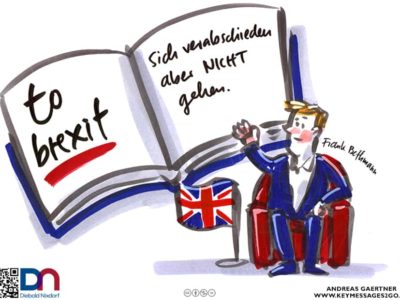 to
brexit
Sich verabschieden
aber NICHT
gehen.
Frank Bethmann
DN
Diebold Nixdorf
ANDREAS GAERTNER
WWW.KEYMESSAGES2GO.